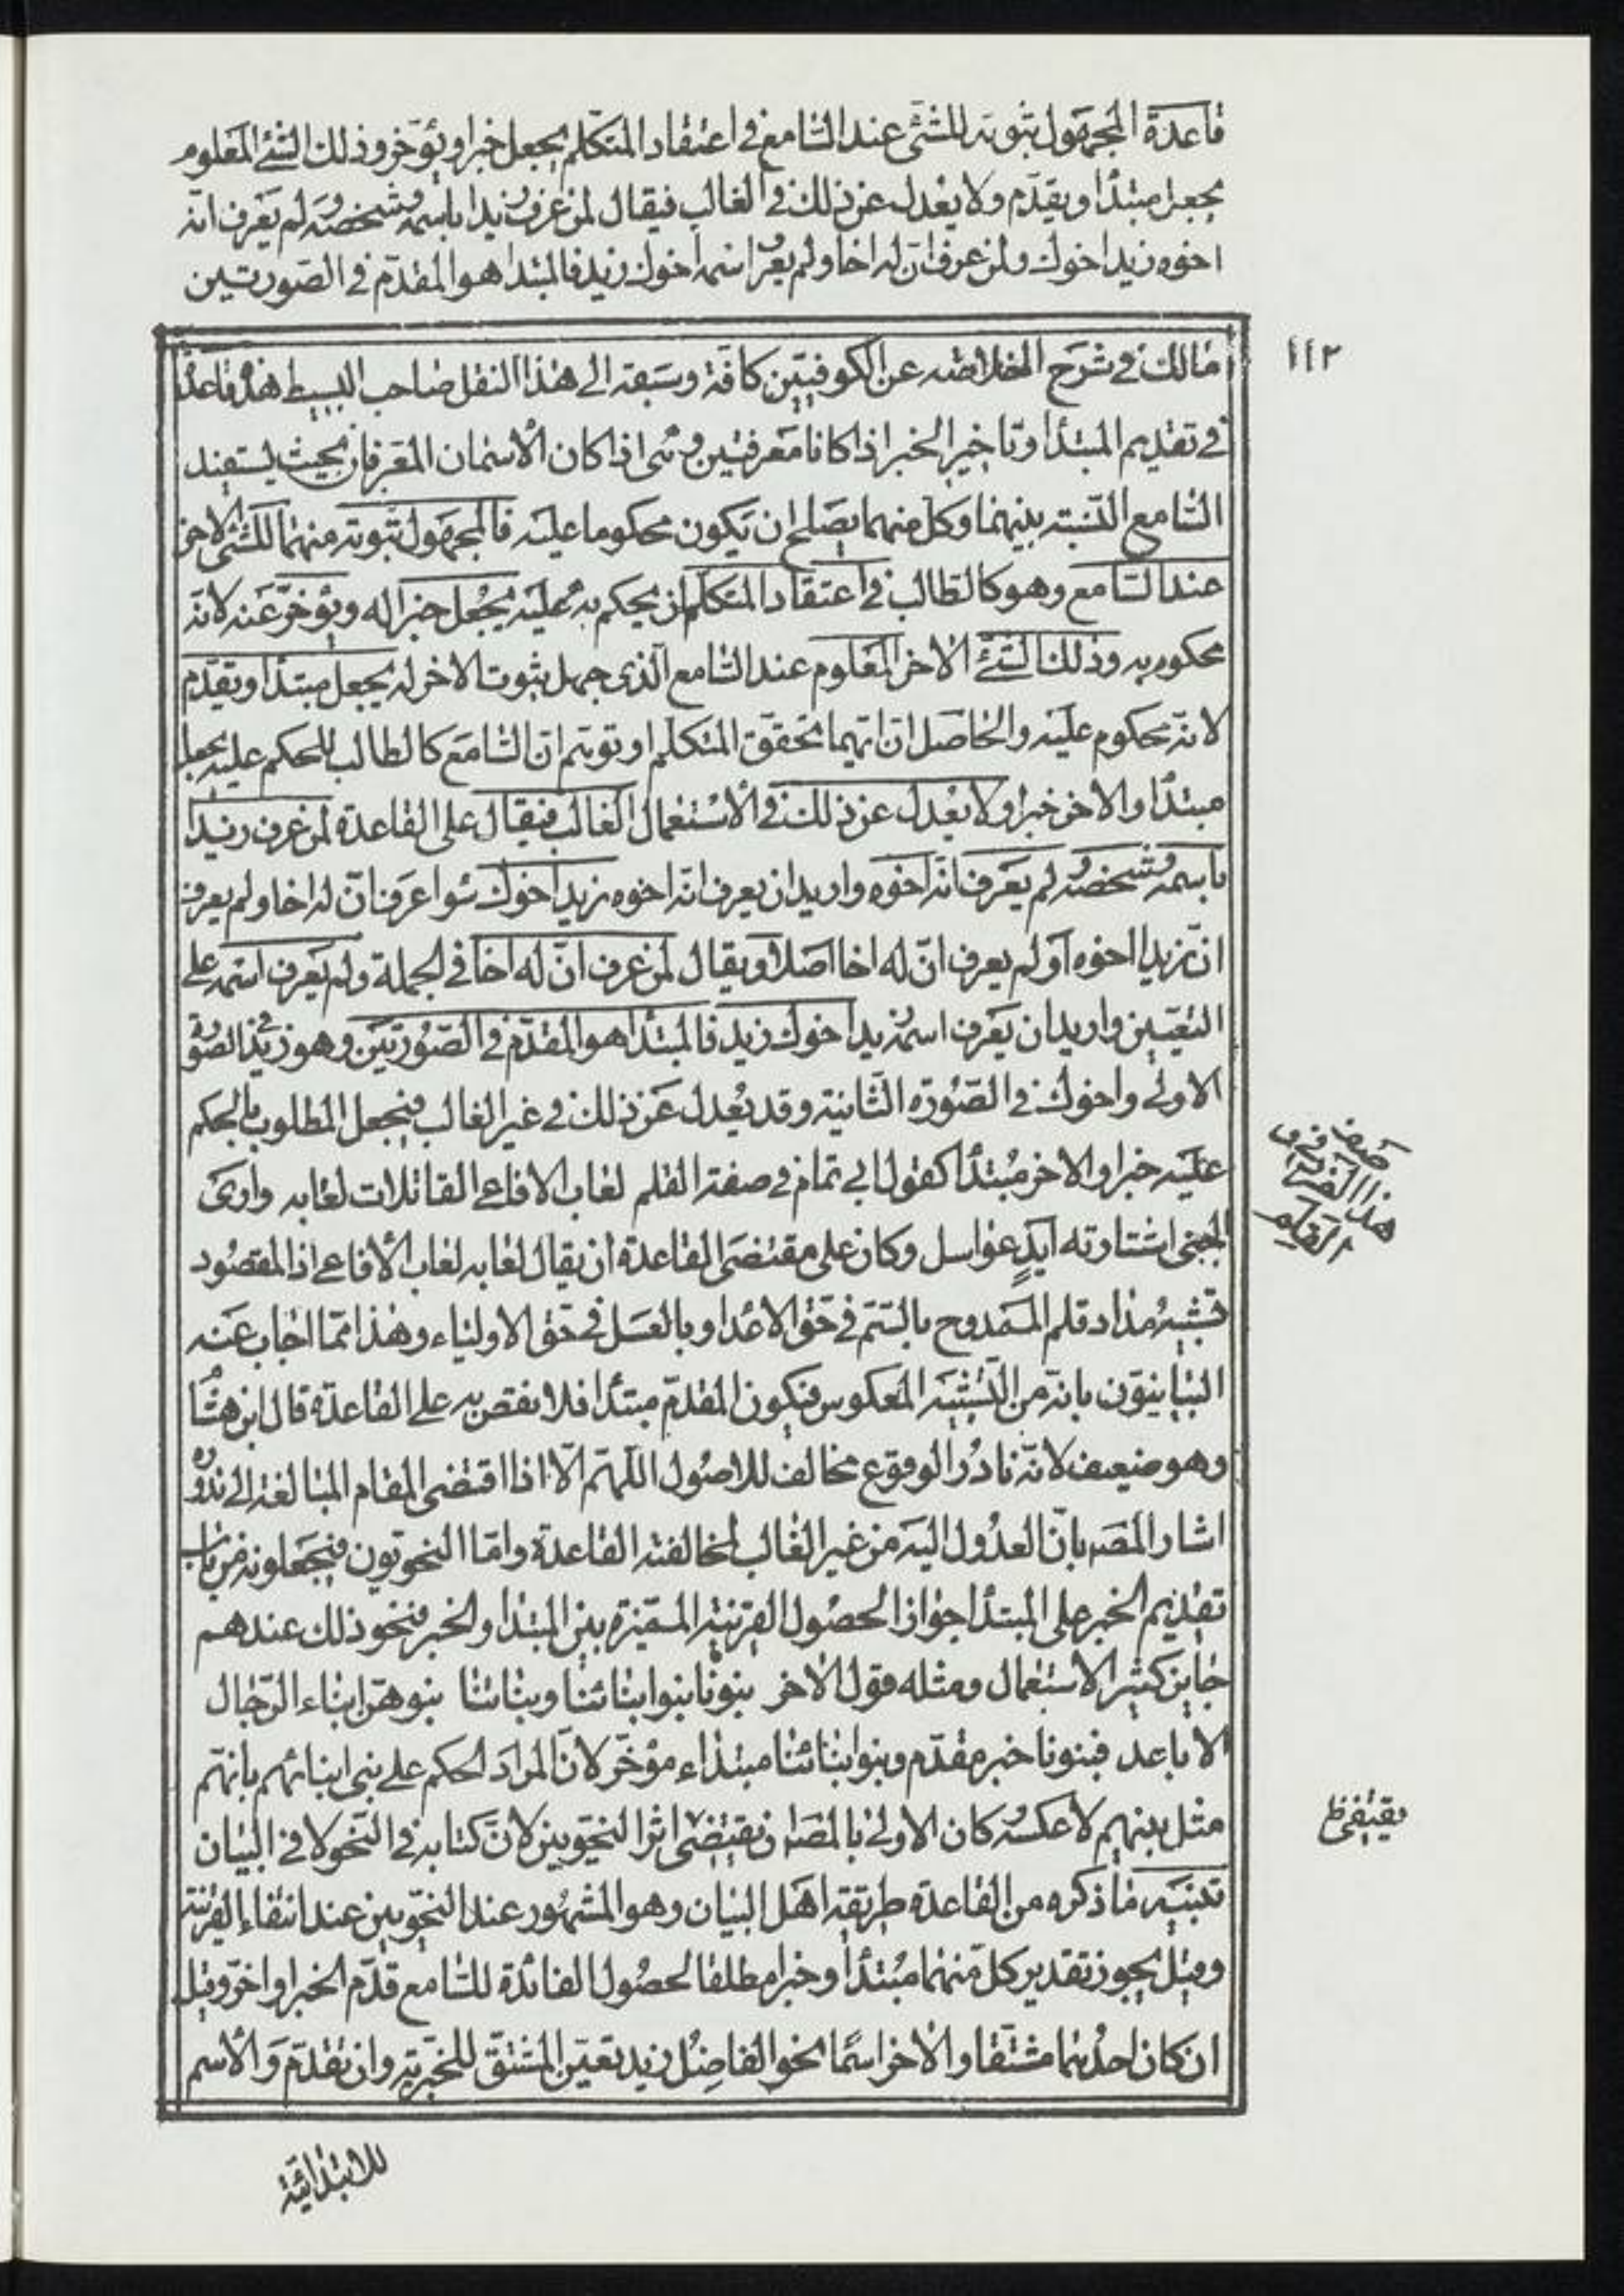 قاعدة المجهول ثبوته للشئ عند السامع في اعتقاد المتكلم يجعل خبرا ويؤخر وذلك الشئ المعلوم
يجعل مبتدأ ويقدم ولا يعدل عن ذلك في الغالب فيقال لمن عرف زيدا باسمه وشخصه لم يعرف انه
اخوه زيد اخوك ولمن عرف ان له اخا ولم يعرف اسمه اخوك زيد فالمبتدا هو المقدم في الصورتين
١١٢
مالك في شرح الخلاصه عن الكوفيين كافة وسبقه الى هذا النقل صاحب البسيط هذه قاعدة
في تقديم المبتدأ وتاخير الخبر اذا كانا معرفتين وهي اذا كان الاسمان المعرفان بحيث يستفيد
السامع النسبة بينهما وكل منهما يصلح ان يكون محكوما عليه فالمجهول ثبوته منهما للشئ الاخر
عند السامع وهو كالطالب في اعتقاد المتكلم ان يحكم به عليه يجعل خبرا له ويؤخر عنه لانه
محكوم به وذلك الشئ الاخر المعلوم عند السامع الذى جهل ثبوت الاخر له يجعل مبتدأ ويقدم
لانه محكوم عليه والحاصل ان ايهما تحقق المتكلم او توهم ان السامع كالطالب للحكم عليه يجعل
مبتدأ والاخر خبرا ولا يعدل عن ذلك في الاستعمال الغالب فيقال على القاعدة لمن عرف زيدا
باسمه وشخصه لم يعرف انه اخوه واريد ان يعرف انه اخوه زيد اخوك سوا عرف ان له اخا ولم يعرف
ان زيدا اخوه او لم يعرف ان له اخا اصلا ويقال لمن عرف ان له اخا في الجملة ولم يعرف اسمه على
التعيين واريد ان يعرف اسمه زيد اخوك زيد فالمبتدأ هو المقدم في الصورتين وهو زيد في الصورة
الاولى واخوك في الصورة الثانية وقد يعدل عن ذلك في غير الغالب فيجعل المطلوب بالحكم
عليه خبرا والاخر مبتدأ كقول ابي تمام في صفة القلم لعاب الافاعي القاتلات لعابه وارى
الجنى اشتارته ايدٍ عواسل وكان على مقتضى القاعدة ان يقال لعابه لعاب الافاعي اذ المقصود
تشبيه مداد قلم الممدوح بالسم في حق الاعدا وبالعسل في حق الاولياء وهذا مما اجاب عنه
البيانيون بانه من التشبيه المعكوس فيكون المقدم مبتدا فلا نقص به على القاعدة قال ابن هشام
وهو ضعيف لانه نادر الوقوع مخالف للاصول اللهم الا اذا اقتضى المقام المبالغة الى ندوره
اشار المصـ بان العدول اليه من غير الغالب لمخالفته القاعدة واما النحويون فيجعلونه من باب
تقديم الخبر على المبتدأ جوازا لحصول القرينة المميزة بين المبتدا والخبر فنحو ذلك عندهم
جايز كثير الاستعمال ومثله قول الاخر بنونا بنوا ابنائنا وبناتنا بنوهن ابناء الرجال
الاباعد فبنونا خبر مقدم وبنوا ابنائنا مبتداء مؤخر لان المراد الحكم على بني ابنائهم بانهم
مثل بنيهم لا عكسه كان الاولى بالمصـ ان يقتفى اثر النحويين لان كتابه في النحو لا في البيان
تنبيه ما ذكره من القاعدة طريقة اهل البيان وهو المشهور عند النحويين عند انتفاء القرينة
وقيل يجوز تقدير كل منهما مبتدأ وخبرا مطلقا لحصول الفائدة للسامع قدم الخبر او اخر وقيل
ان كان احدهما مشتقا والاخر اسما نحو الفاضل زيد تعين المشتق للخبرية وان تقدم والاسم
يقتفى ظ
للابتدائية